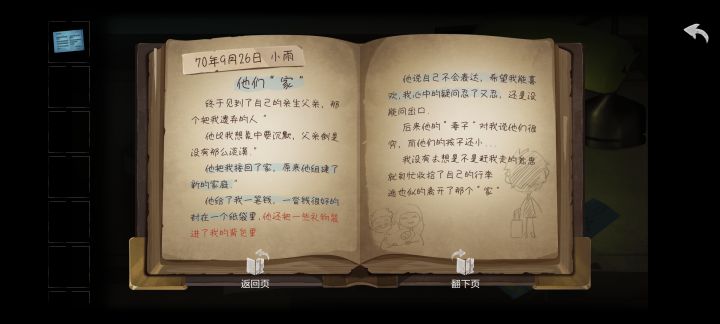 70年9月26日 小雨
他们“家”
终于见到了自己的亲生父亲，那
个把我遗弃的人。
他比我想象中要沉默，父亲倒是
没有那么淡漠。
他把我接回了家，原来他组建了
新的家庭。
他给了我一笔钱，一沓钱很好的
封在一个纸袋里，他还把一些礼物装
进了我的背包里
他说自己不会表达，希望我能喜
欢，我心中的疑问忍了又忍，还是没
能问出口。
后来他的“妻子”对我说他们很
穷，而他们的孩子还小...
我没有去想是不是赶我走的意思
就匆忙收拾了自己的行李
逃也似的离开了那个“家”
返回页
翻下页